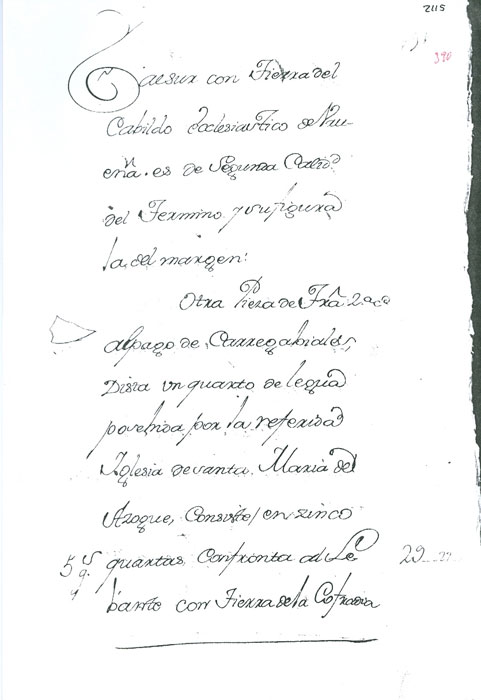 2115
390
al sur con Tierra del
Cabildo Eclesiastico de Nue-
eña. es de Segunda Calid.
del Termino y su figura
la del margen:
Otra Pieza de Trã. Seca
al pago de, Carregabiales,
Dista un quarto de legua
posehida por la referida
Yglesia de santa Maria del
Azogue, Consiste, en zinco
5 qs. quartas, Confronta al Le 29
bante con Tierra de la Cofradia